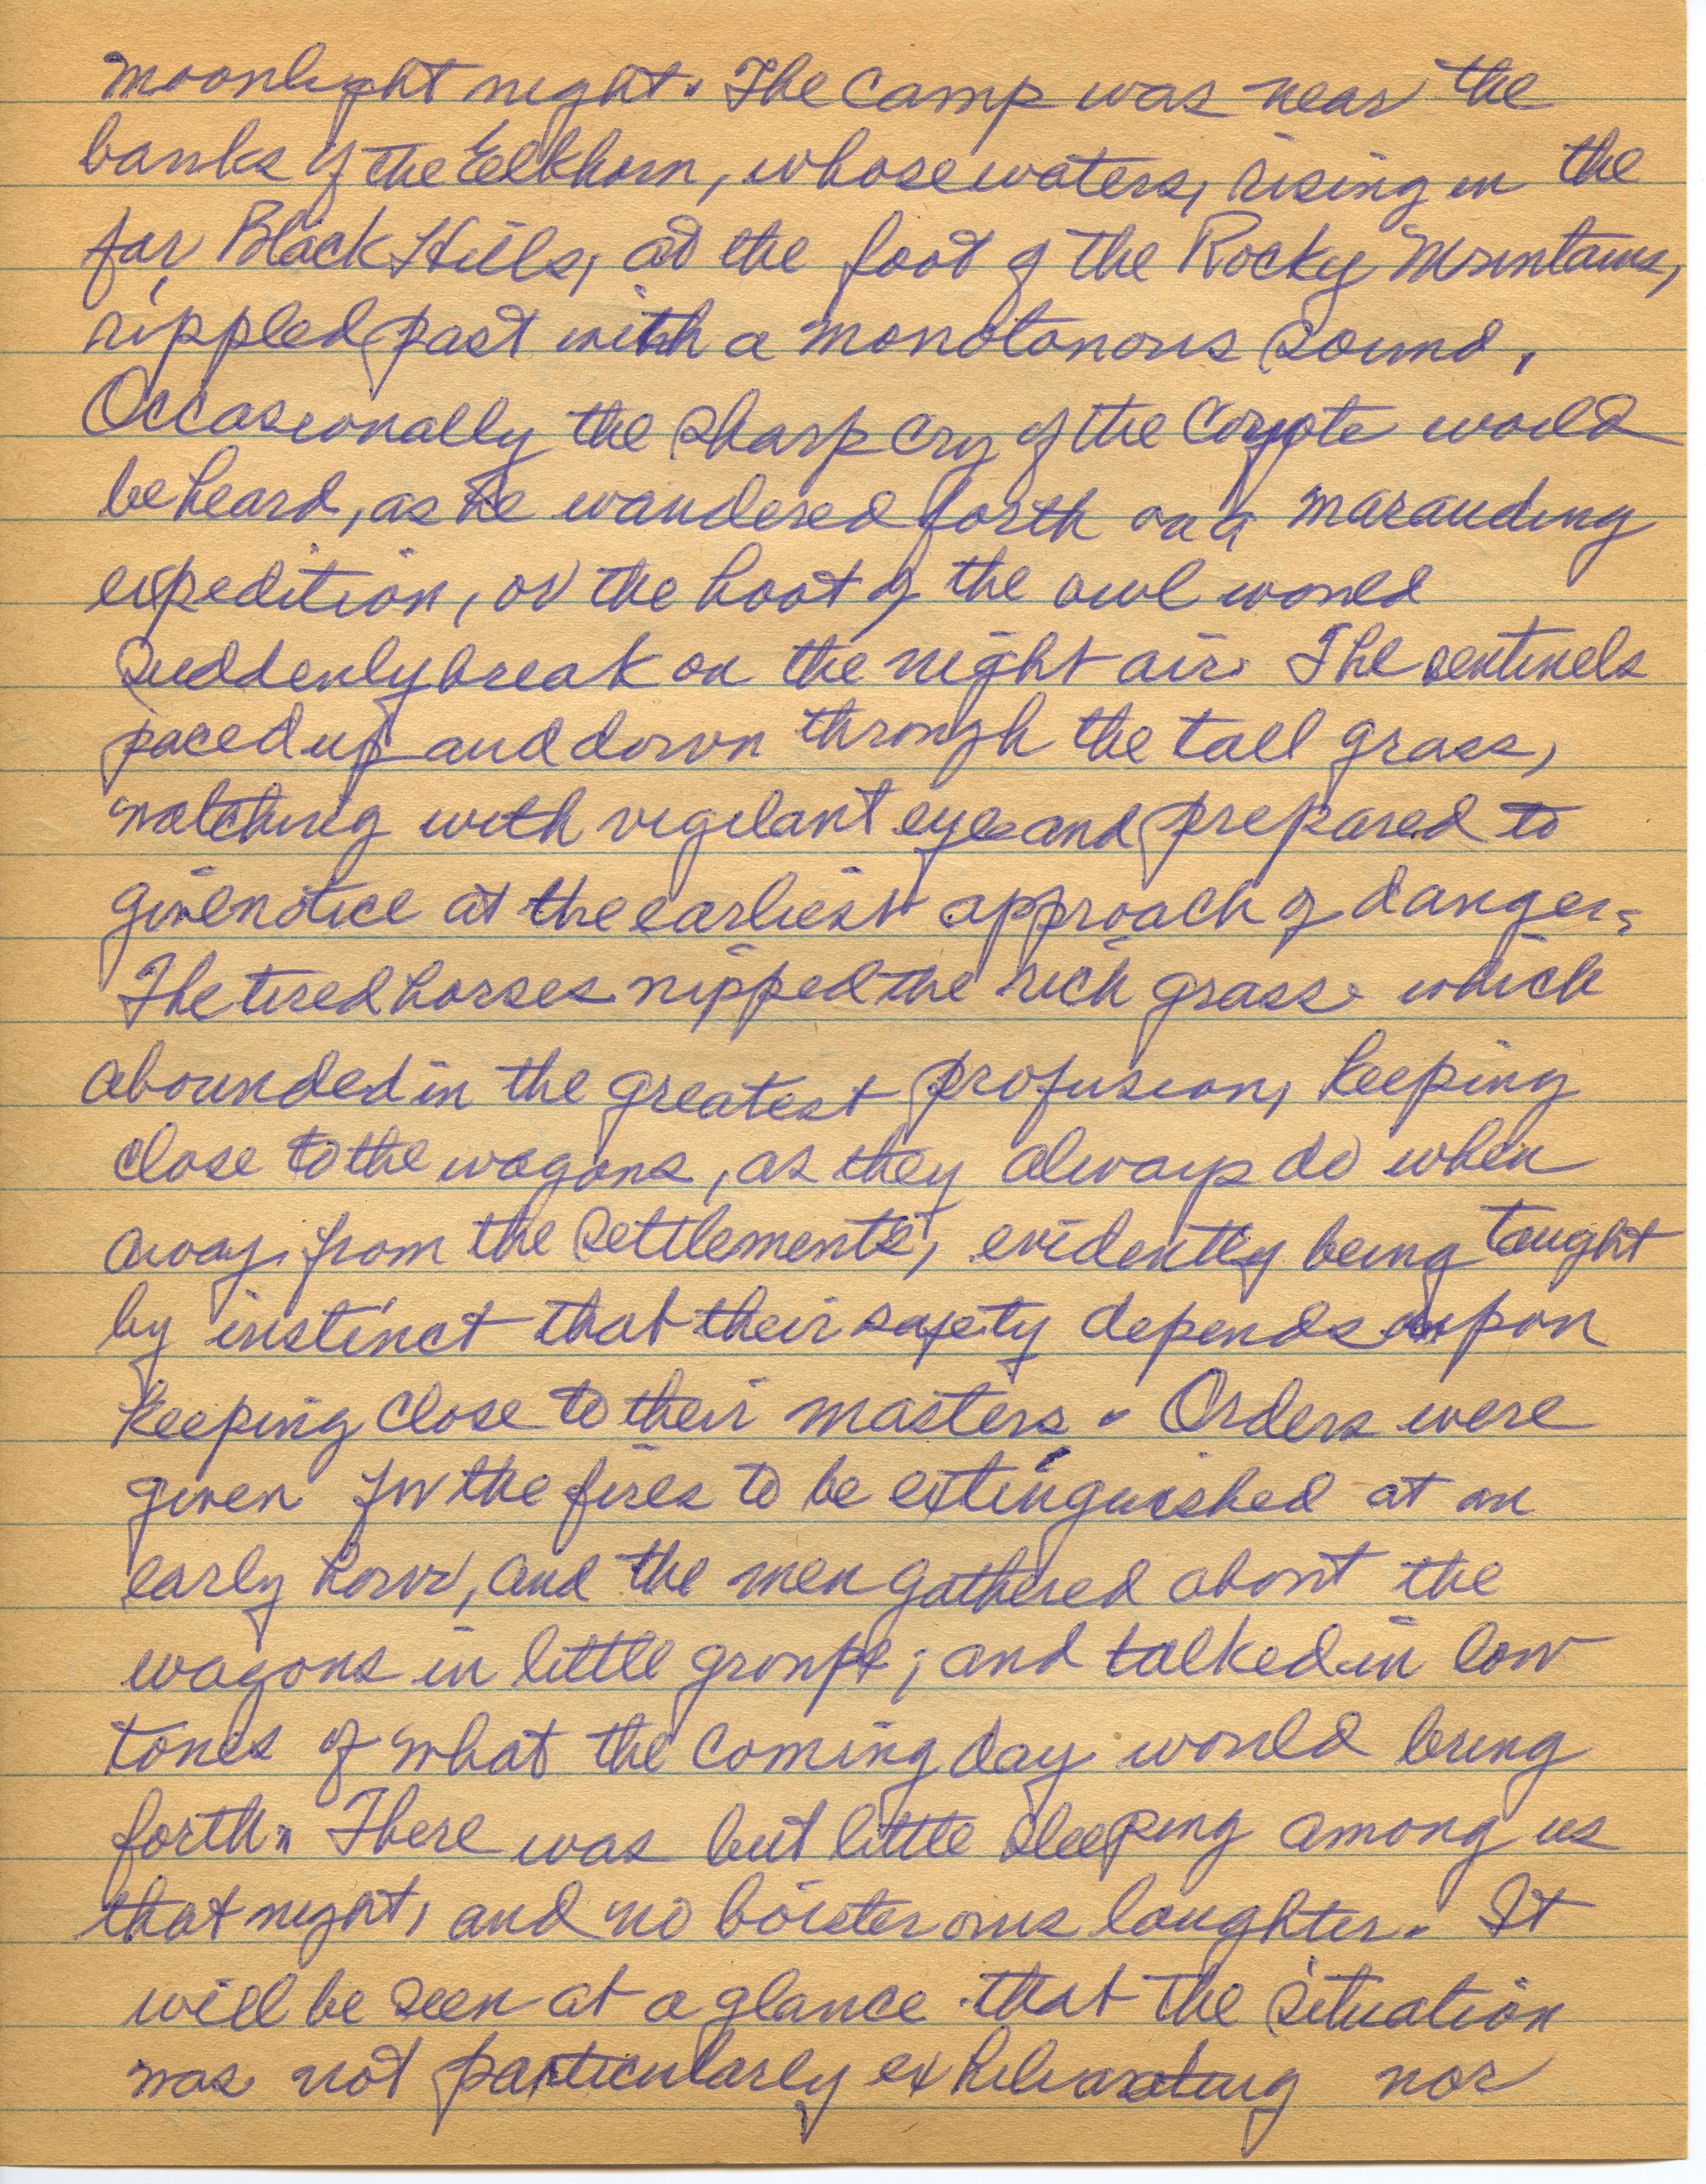 moonlight night. The Camp was near the
banks of the Eelkhorn, whose waters, rising in the
far Black Hills, at the foot of the Rocky Mountains,
rippled past with a monotonous sound.
Occasionally the sharp cry of the Coyote would
be heard, as he wandered forth on a marauding
expedition, or the hoot of the owl would
suddenly break on the night air. The sentinels
paced up and down through the tall grass,
watching with vigilant eye and prepared to
give notice at the earliest approach of danger.
The tired horses nipped the rich grass which
abounded in the greatest profusion, keeping
close to the wagons, as they always do when
away from the settlements, evidently being taught
by instinct that their safety depends upon
keeping close to their masters. Orders were
given for the fires to be extinguished at an
early hour, and the men gathered about the
wagons in little groups; and talked in low
tones of what the coming day would bring
forth. There was but little sleeping among us
that night, and no boisterous laughter. It
will be seen at a glance that the situation
was not particularly exhilarating nor